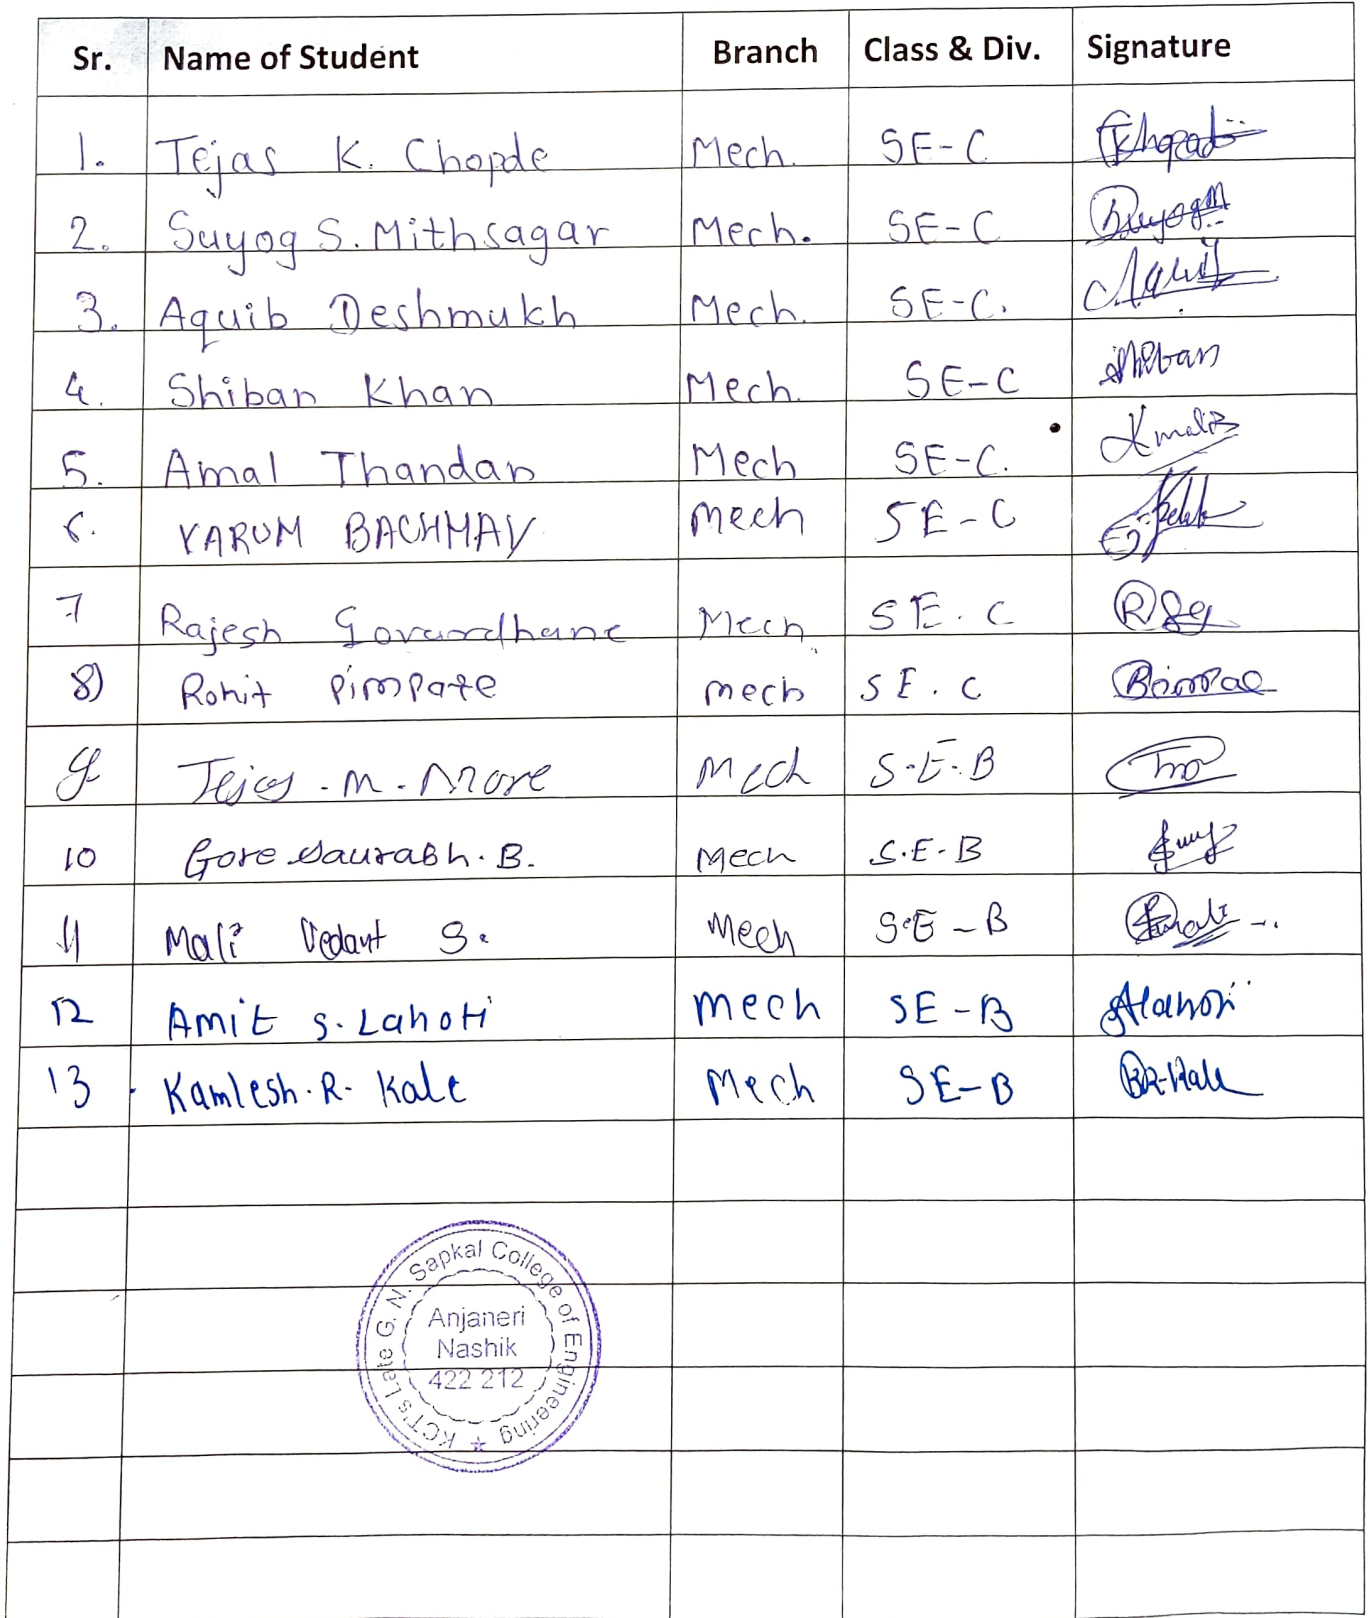 Sr. Name of Student Branch Class & Div. Signature
1. Tejas K. Chopde Mech. SE-C
2. Suyog S. Mithsagar Mech. SE-C
3. Aquib Deshmukh Mech. SE-C.
4. Shiban Khan Mech. SE-C Shiban
5. Amal Thandan Mech SE-C.
6. VARUM BACHHAV mech SE-C
7 Rajesh Govardhane Mech SE.C
8) Rohit Pimpate mech SE.C
9 Tejas.M.More Mech S.E.B
10 Gore SauraBh.B. Mech S.E-B
11 Mali Vedant S. Mech S.E-B
12 Amit S. Lahoti mech SE-B
13 Kamlesh.R. Kale Mech SE-B
KCT's Late G. N. Sapkal College of Engineering
Anjaneri
Nashik
422 212